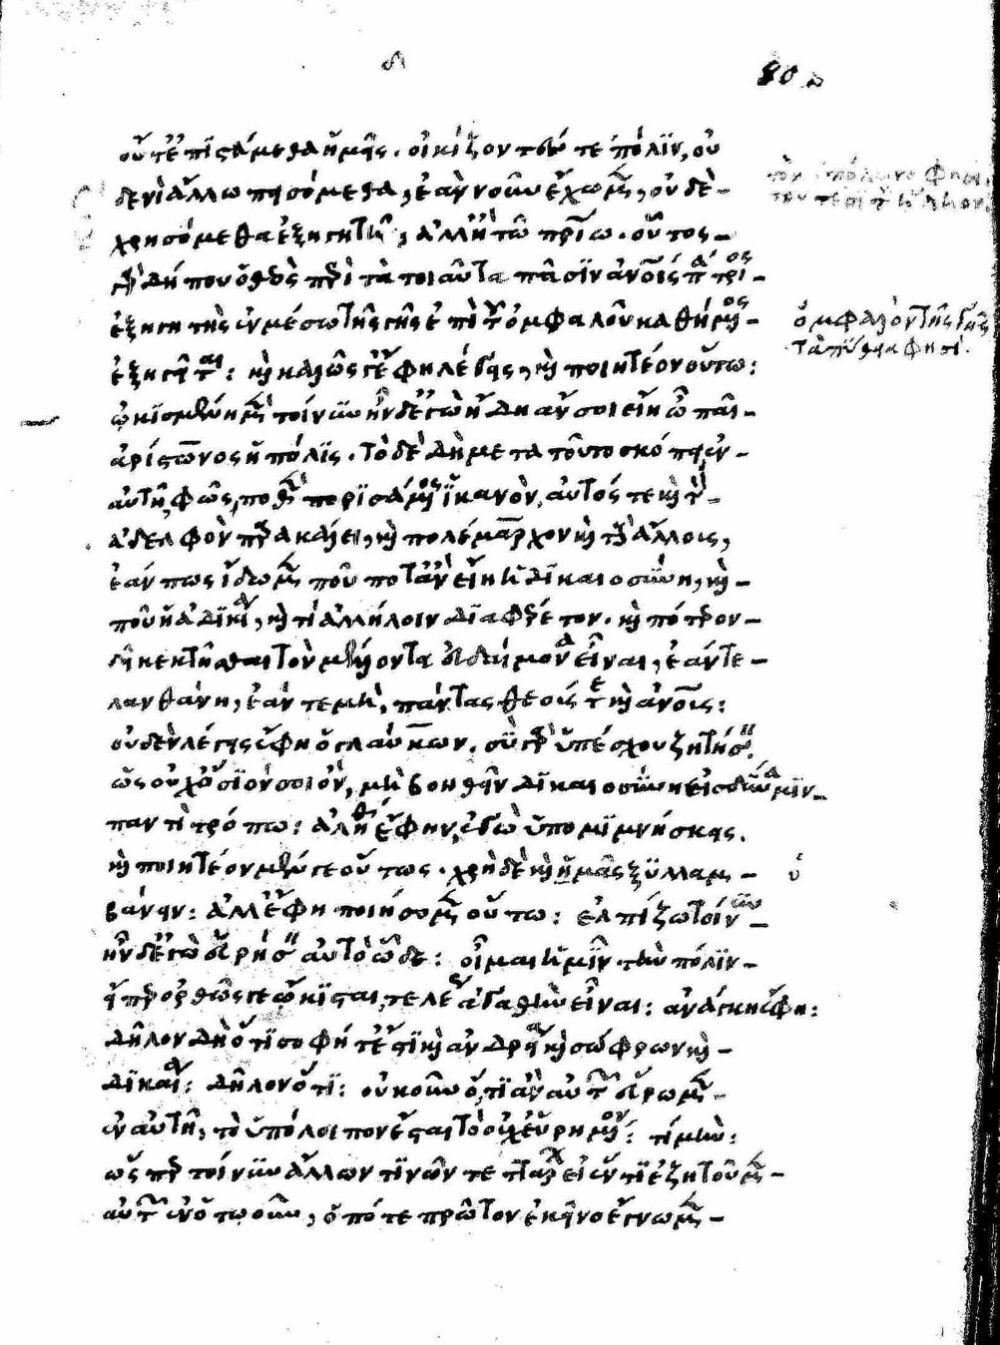 δ 80 α
οὔτ' ἐπιστάμεθα ἡμεῖς. οἰκίζοντές τε πόλιν, οὐ
δενὶ ἄλλω πεισόμεθα, ἐὰν νοῦν ἔχωμεν, οὐδὲ
χρησόμεθα ἐξηγητῆ, ἀλλ' ἢ τῶ πατρίω. οὗτος
γὰρ δήπου ὁ θεὸς περὶ τὰ τοιαῦτα πᾶσιν ἀνοις πάτριος
ἐξηγητὴς ἐν μέσω τῆς γῆς ἐπὶ τοῦ ὀμφαλοῦ καθήμενος
ὀμφαλὸν τῆς γῆς
τὰ πύθια φησί.
ἐξηγεῖται: καὶ καλῶς γ' ἔφη λέγεις, καὶ ποιητέον οὕτω:
ὠκισμένη μὲν τοίνυν ἦν δ' ἐγὼ ἤδη ἄν σοι εἴη ὦ παῖ
ἀρίστωνος ἡ πόλις. τὸ δὲ δὴ μετὰ τοῦτο σκόπει ἐν
αὐτῆ, φῶς ποθὲν πορισάμενος ἱκανὸν, αὐτός τε καὶ τὸν
ἀδελφὸν παρακάλει, καὶ πολέμαρχον καὶ τοὺς ἄλλους,
ἐάν πως ἴδωμεν ποῦ ποτ' ἂν εἴη ἡ δικαιοσύνη, καὶ
ποῦ ἡ ἀδικία, καὶ τί ἀλλήλοιν διαφέρετον. καὶ πότερον
δεῖ κεκτῆσθαι τὸν μέλλοντα εὐδαίμονα εἶναι, ἐάν τε
λανθάνη, ἐάν τε μὴ, πάντας θεούς τε καὶ ἀνους:
οὐδὲν λέγεις ἔφη ὁ γλαύκων. σὺ γὰρ ὑπέσχου ζητήσειν.
ὡς οὐχ ὅσιόν σοι ὂν, μὴ βοηθεῖν δικαιοσύνη εἰς δύναμιν
παντὶ τρόπω: ἀληθῆ ἔφην, ἐγὼ ὑπομιμνήσκεις.
καὶ ποιητέον μέν γε οὕτως. χρὴ δὲ καὶ ὑμᾶς ξυλλαμ
βάνειν: ἀλλ' ἔφη ποιήσομεν οὕτω: ἐλπίζω τοίνυν
ἦν δ' ἐγὼ εὑρήσειν αὐτὸ ὧδε: οἶμαι ἡμῖν τὴν πόλιν
εἴπερ ὀρθῶς γε ὤκισται, τελέως ἀγαθὴν εἶναι: ἀνάγκη ἔφη:
δῆλον δὴ ὅτι σοφή τ' ἐστὶ καὶ ἀνδρεία καὶ σώφρων καὶ
δικαία: δῆλον ὅτι: οὐκοῦν ὅ,τι ἂν αὐτῶν εὕρωμεν
ἐν αὐτῆ, τὸ ὑπόλοιπον ἔσται τὸ οὐχ εὑρημένον: τί μήν:
ὥσπερ τοίνυν ἄλλων τινῶν τεττάρων εἰ ἕν τι ἐζητοῦμεν
αὐτῶν ἐν ὁτωοῦν, ὁπότε πρῶτον ἐκεῖνο ἔγνωμεν